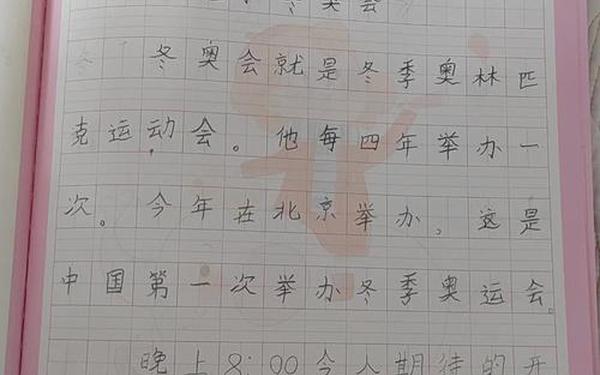 冬奥会
冬奥会就是冬季奥林匹
克运动会。他每四年举办一
次。今年在北京举办,这是
中国第一次举办冬季奥运会。
晚上8:00令人期待的开